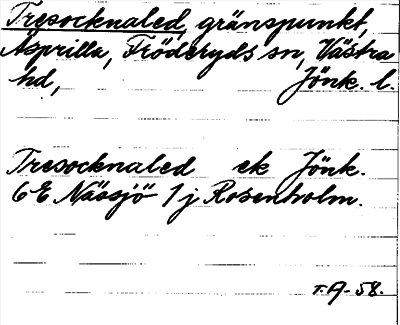 Tresocknaled, gränspunkt,
Äsprilla, Fröderyds sn, Västra
hd, Jönk. l.
Tresocknaled ek Jönk.
6E Nässjö 1j Rosenholm.
T.A-58.